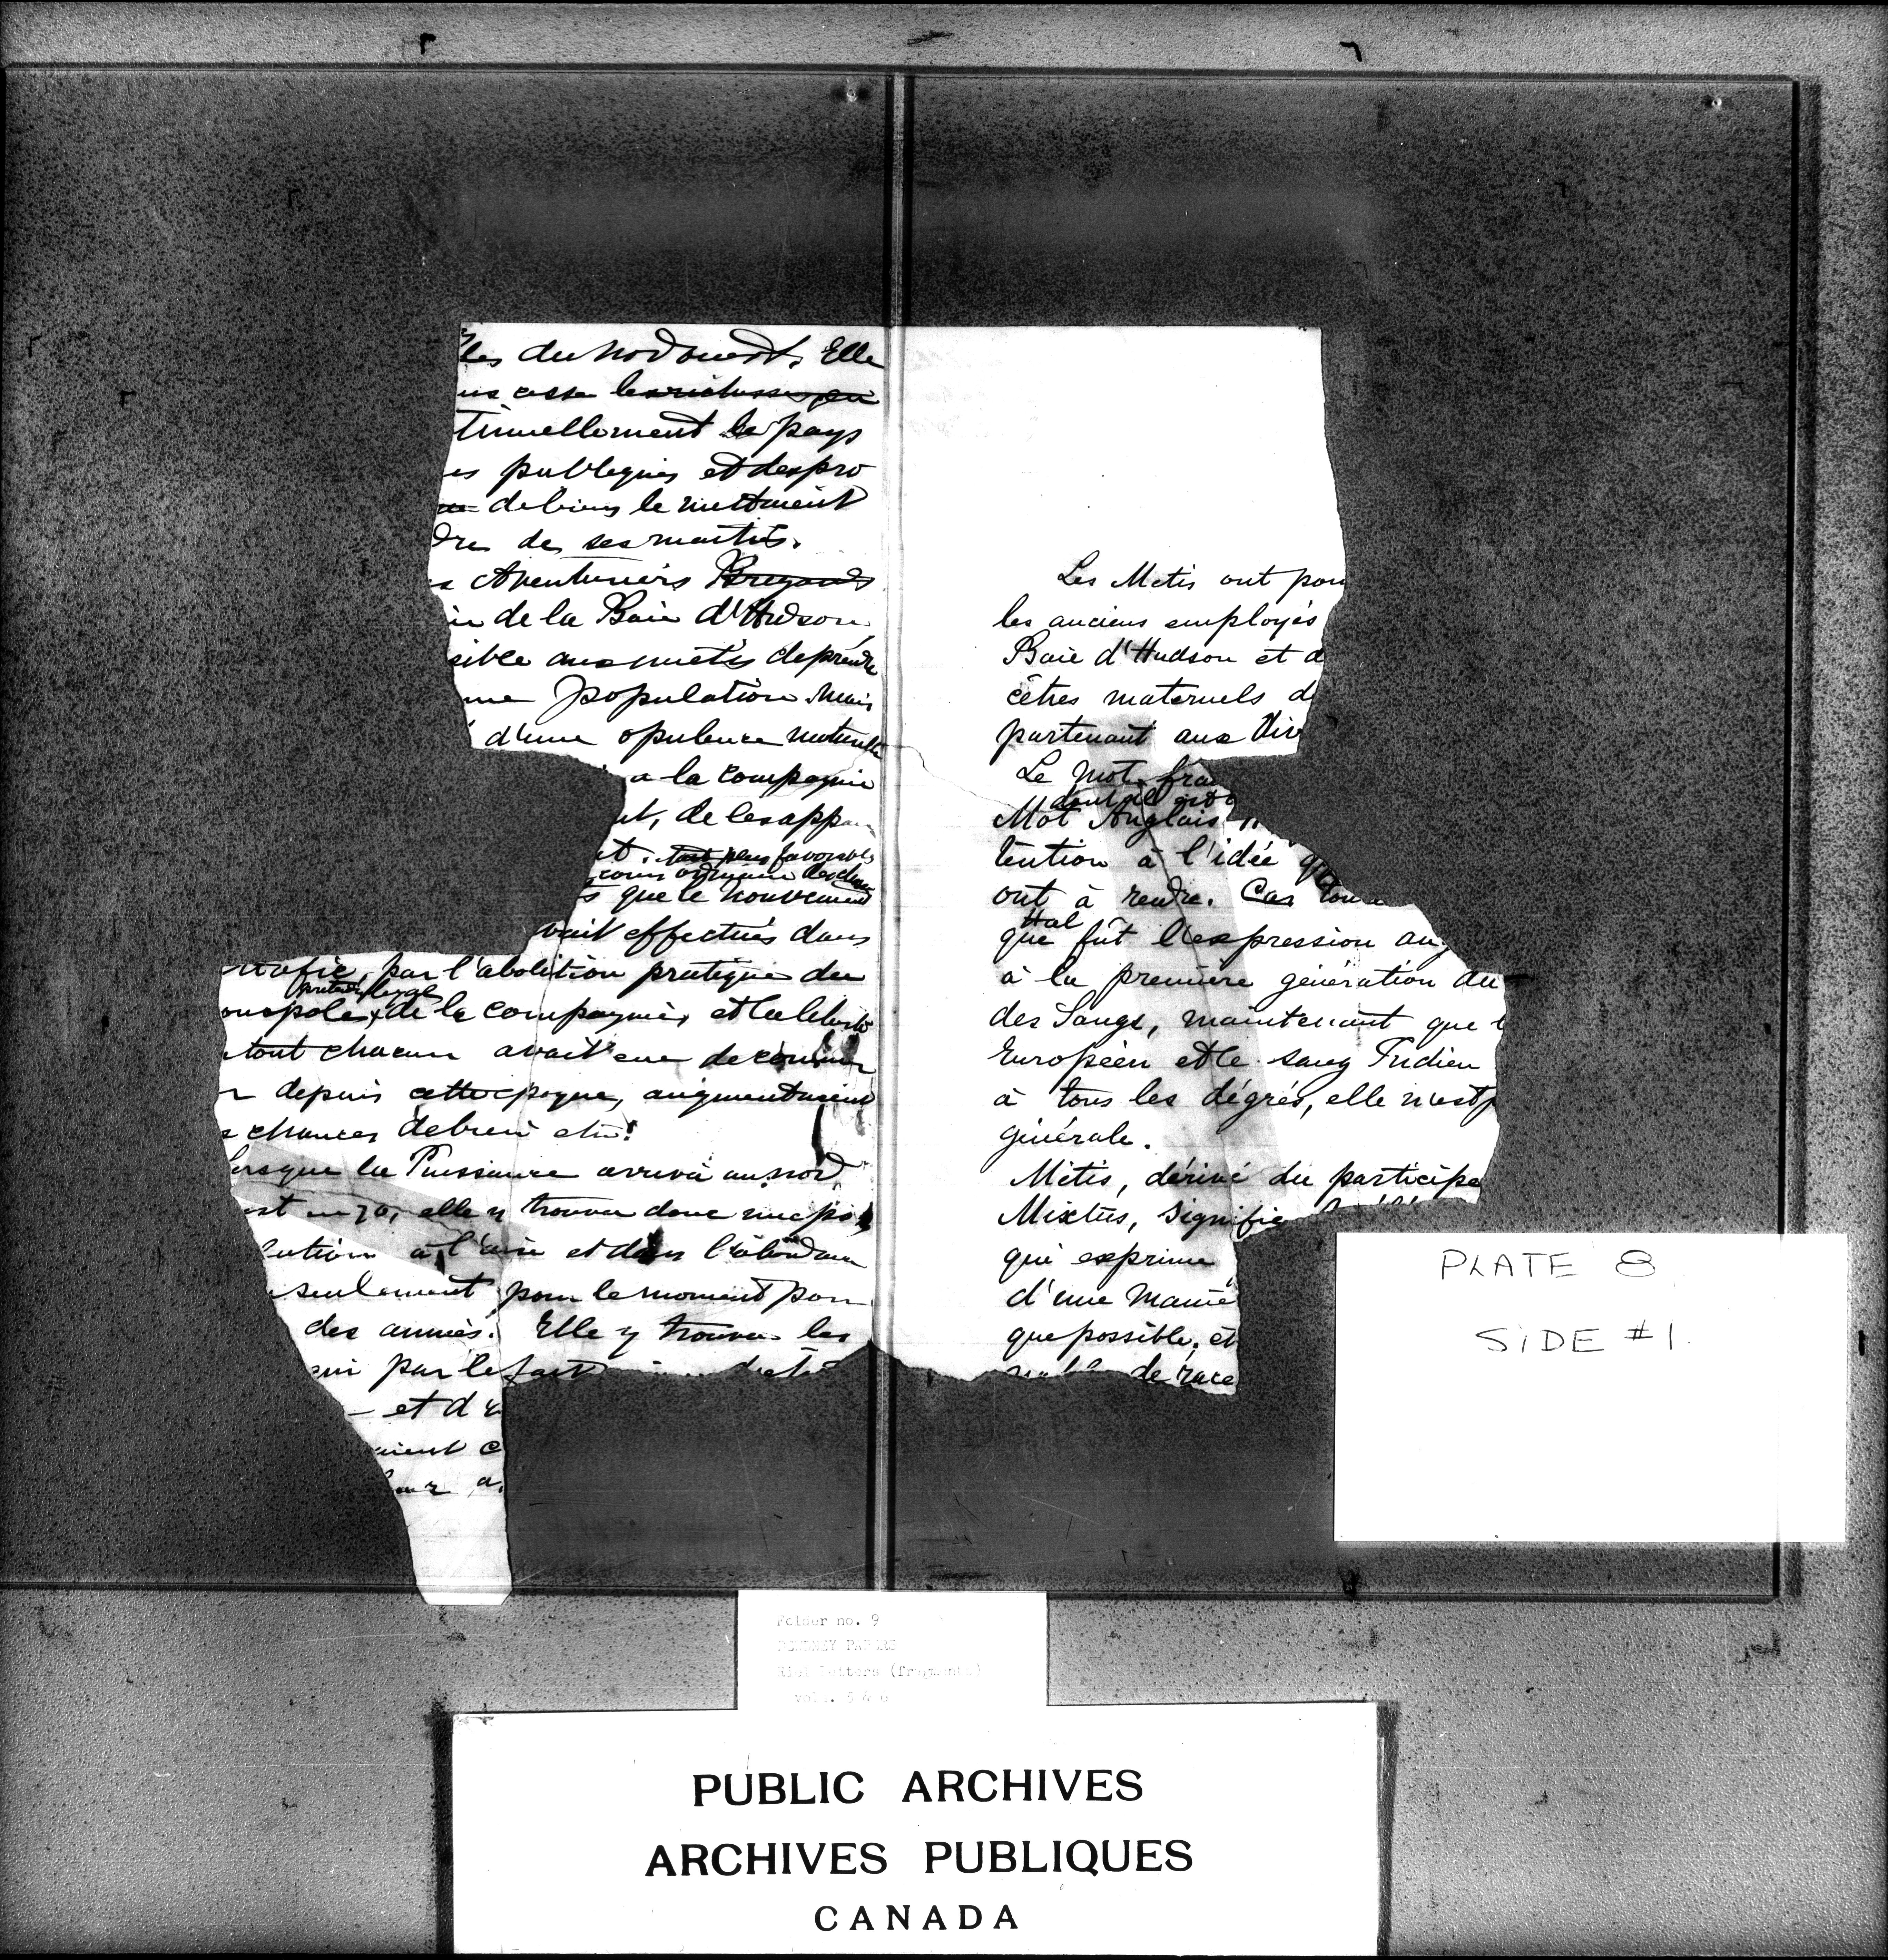 les du nord ouest. Elle
cesse les richesses
tinuellement le pays
es publiques et des pro
de biens le mettaient
dre de ses maitres.
Aventuriers
de la Baie d'Hudson
sible aux métis de prendre
me population. Mais
d'une opulence naturelle
a la compagnie
nt, de les app
t. tout plus favorables
cours ordinaire des choses
s que le mouvement
vait effectués dans
trafic, par l'abolition pratique du
onopole de la compagnie, et la liberté
tout chacun avait eue de commer
r depuis cette époque, augmentaient
s chances de bien etre!
lorsque la Puissance arriva au nord
est en 70, elle y trouva donc une po
lution à l'aise et dans l'abondan
seulement pour le moment pour
des années. Elle y trouva les
qui par le fait
et d
aient c
leur a
Les Metis ont pour
les anciens employés
Baie d'Hudson et d
cêtres maternels d
partenant aux dive
Le mot fra
dont il est
Mot Anglais
tention à l'idée qu
ont à rendre. Car
tal
que fût l'expression ang
à la première génération du
des Sangs, maintenant que l
Européen et le sang Indien
à tous les dégrés, elle n'est p
générale.
Métis, dérivé du participe
Mixtus, signifie
qui exprime
d'une Maniè
que possible, et
de race
PLATE 8
SIDE #1.
Folder no. 9
DEWDNEY PAPERS
Riel letters (fragments)
vols. 5 & 6
PUBLIC ARCHIVES
ARCHIVES PUBLIQUES
CANADA